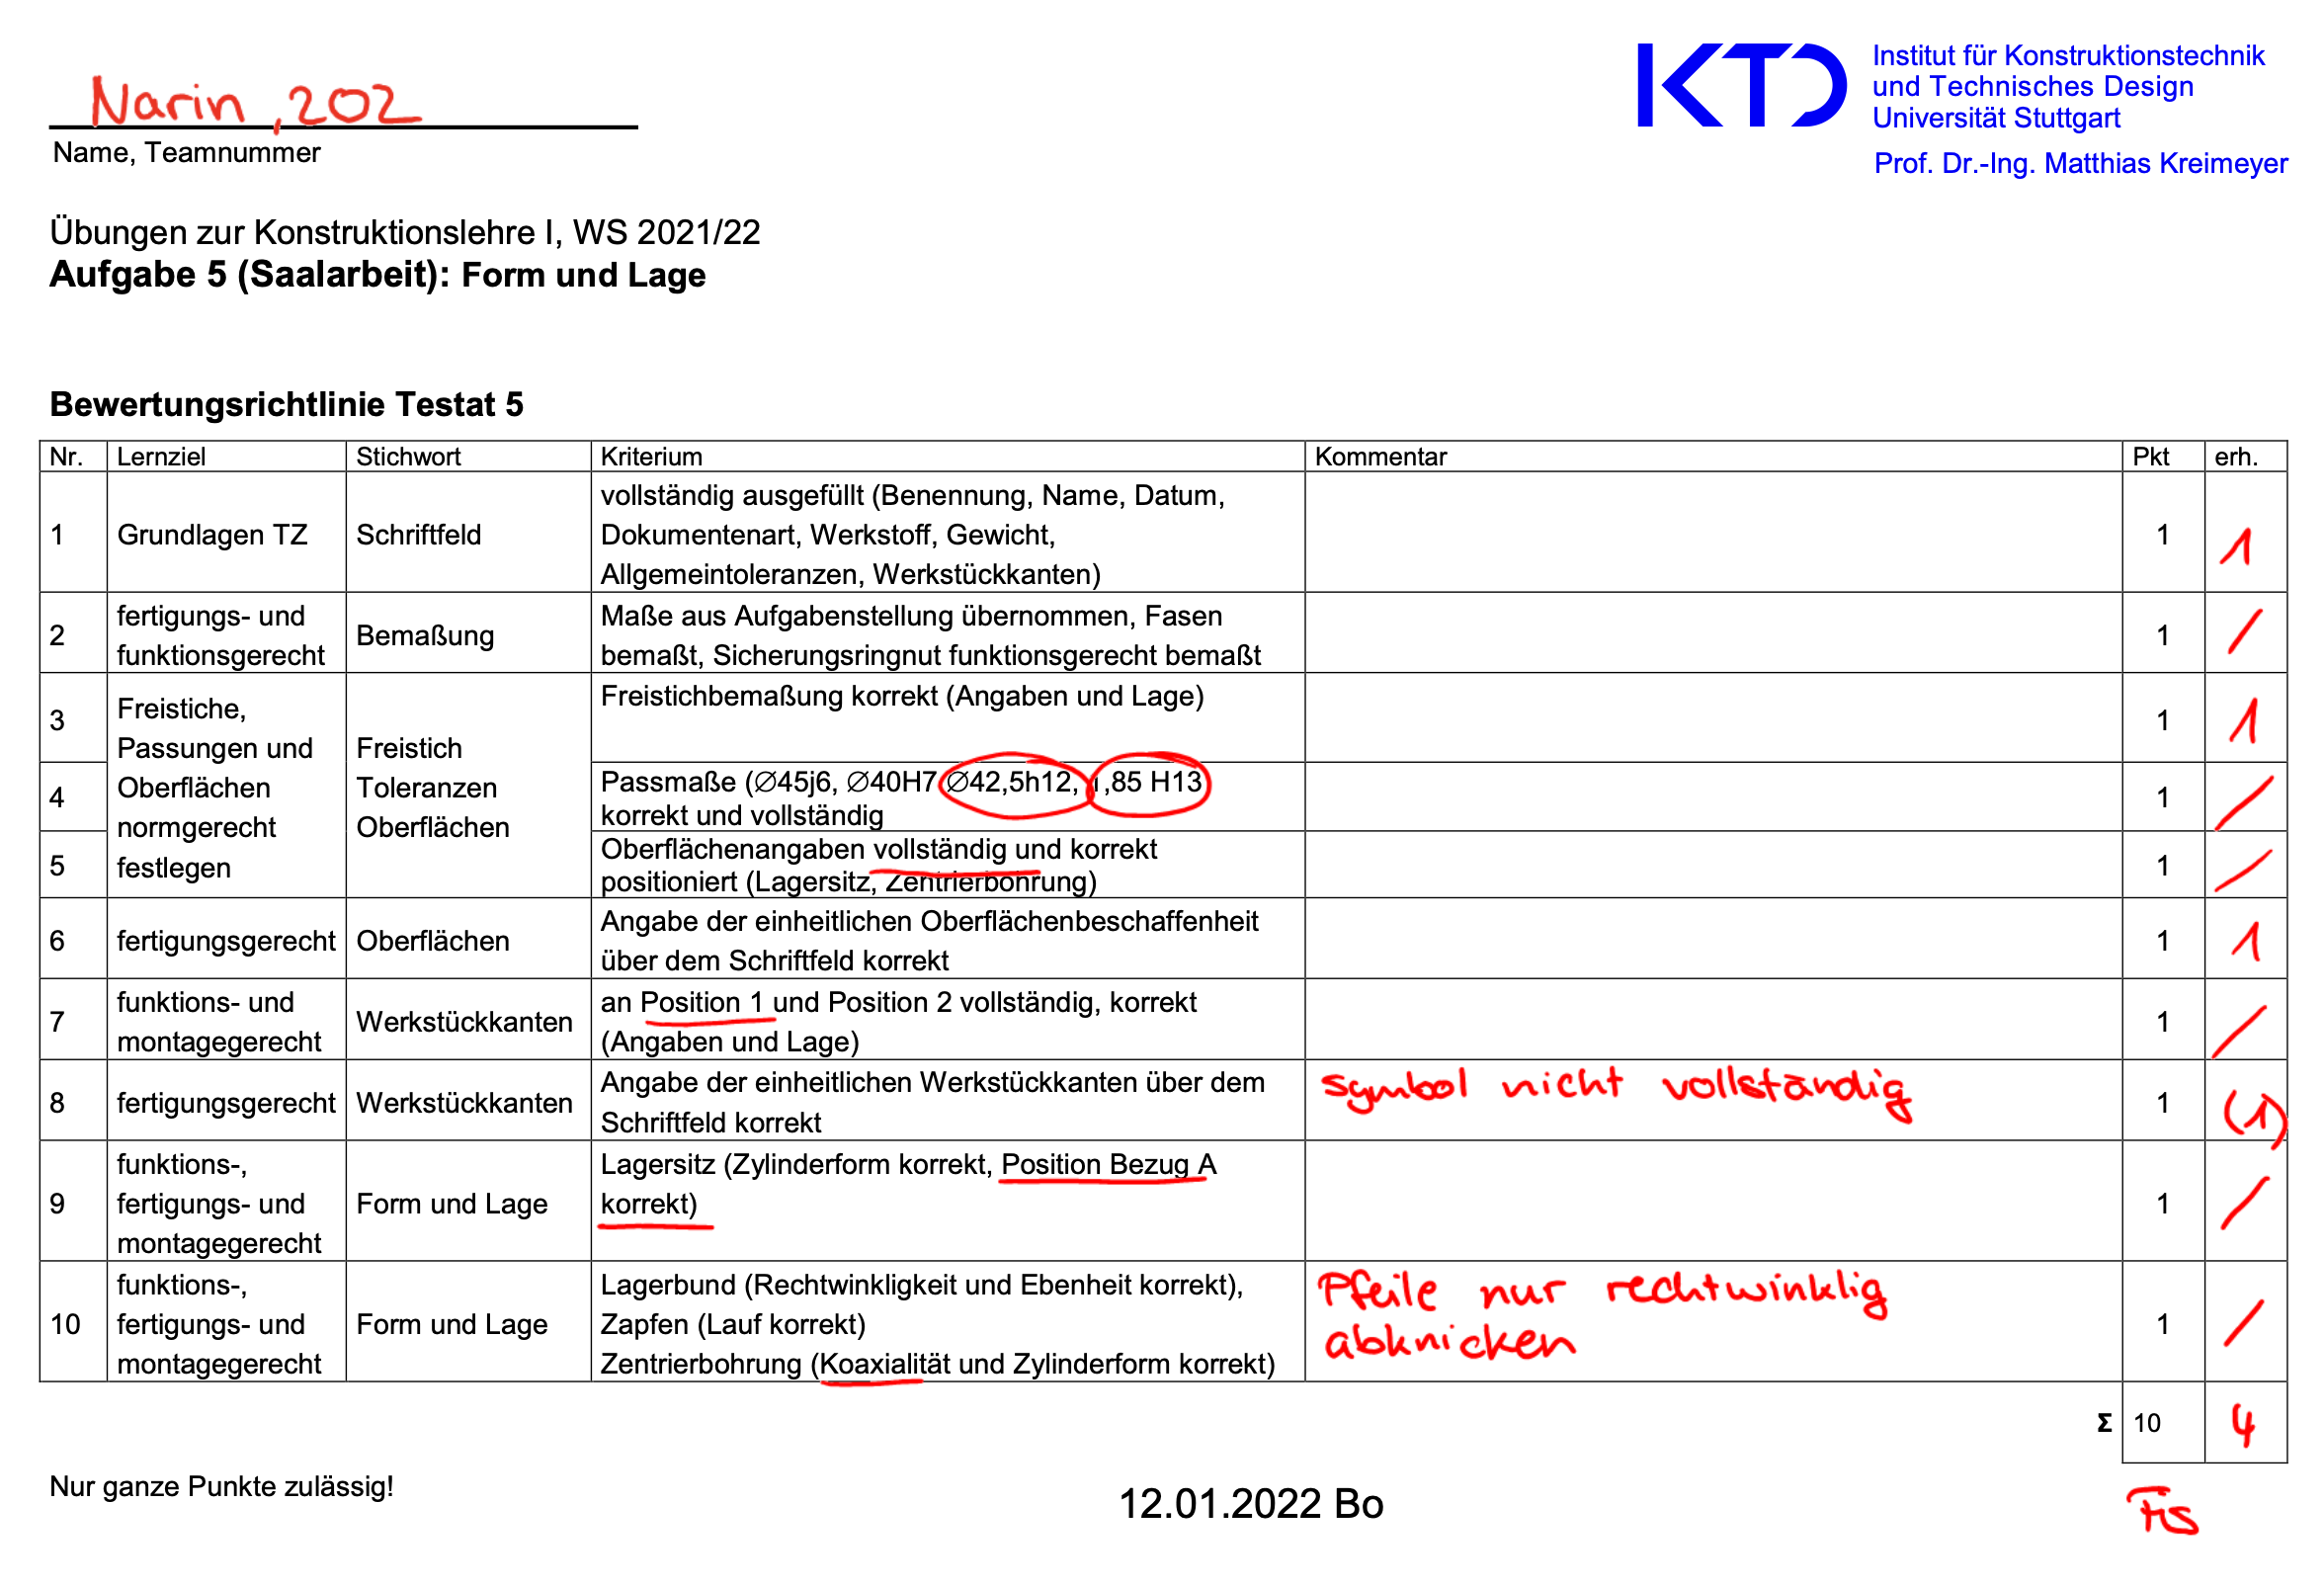 Narin, 202
Name, Teamnummer
KTD
Institut für Konstruktionstechnik
und Technisches Design
Universität Stuttgart
Prof. Dr.-Ing. Matthias Kreimeyer
Übungen zur Konstruktionslehre I, WS 2021/22
Aufgabe 5 (Saalarbeit): Form und Lage
Bewertungsrichtlinie Testat 5
Nr. Lernziel Stichwort Kriterium Kommentar Pkt erh.
1 Grundlagen TZ Schriftfeld vollständig ausgefüllt (Benennung, Name, Datum,
Dokumentenart, Werkstoff, Gewicht,
Allgemeintoleranzen, Werkstückkanten) 1 1
2 fertigungs- und
funktionsgerecht Bemaßung Maße aus Aufgabenstellung übernommen, Fasen
bemaßt, Sicherungsringnut funktionsgerecht bemaßt 1 /
3 Freistiche,
Passungen und
Oberflächen
normgerecht
festlegen
Freistich
Toleranzen
Oberflächen
Freistichbemaßung korrekt (Angaben und Lage) 1 1
4 Passmaße (∅45j6, ∅40H7 ∅42,5h12, 1,85 H13
korrekt und vollständig 1 /
5 Oberflächenangaben vollständig und korrekt
positioniert (Lagersitz, Zentrierbohrung) 1 /
6 fertigungsgerecht Oberflächen Angabe der einheitlichen Oberflächenbeschaffenheit
über dem Schriftfeld korrekt 1 1
7 funktions- und
montagegerecht Werkstückkanten an Position 1 und Position 2 vollständig, korrekt
(Angaben und Lage) 1 /
8 fertigungsgerecht Werkstückkanten Angabe der einheitlichen Werkstückkanten über dem
Schriftfeld korrekt symbol nicht vollständig 1 (1)
9 funktions-,
fertigungs- und
montagegerecht Form und Lage Lagersitz (Zylinderform korrekt, Position Bezug A
korrekt) 1 /
10 funktions-,
fertigungs- und
montagegerecht Form und Lage Lagerbund (Rechtwinkligkeit und Ebenheit korrekt),
Zapfen (Lauf korrekt)
Zentrierbohrung (Koaxialität und Zylinderform korrekt)
Pfeile nur rechtwinklig
abknicken 1 /
Σ 10 4
Nur ganze Punkte zulässig!
12.01.2022 Bo
Fis